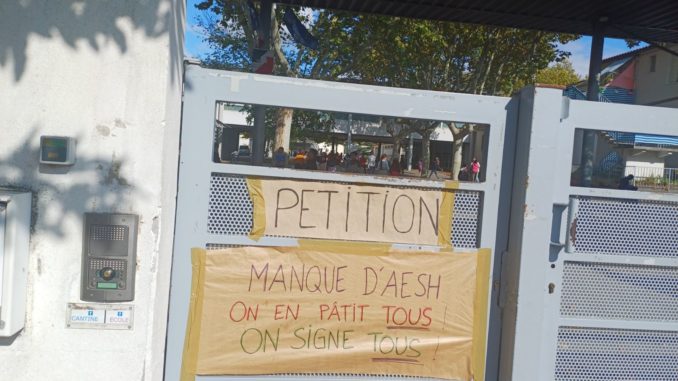 PETITION
MANQUE D'AESH
ON EN PÂTIT TOUS !
ON SIGNE TOUS !
CANTINE
ÉCOLE